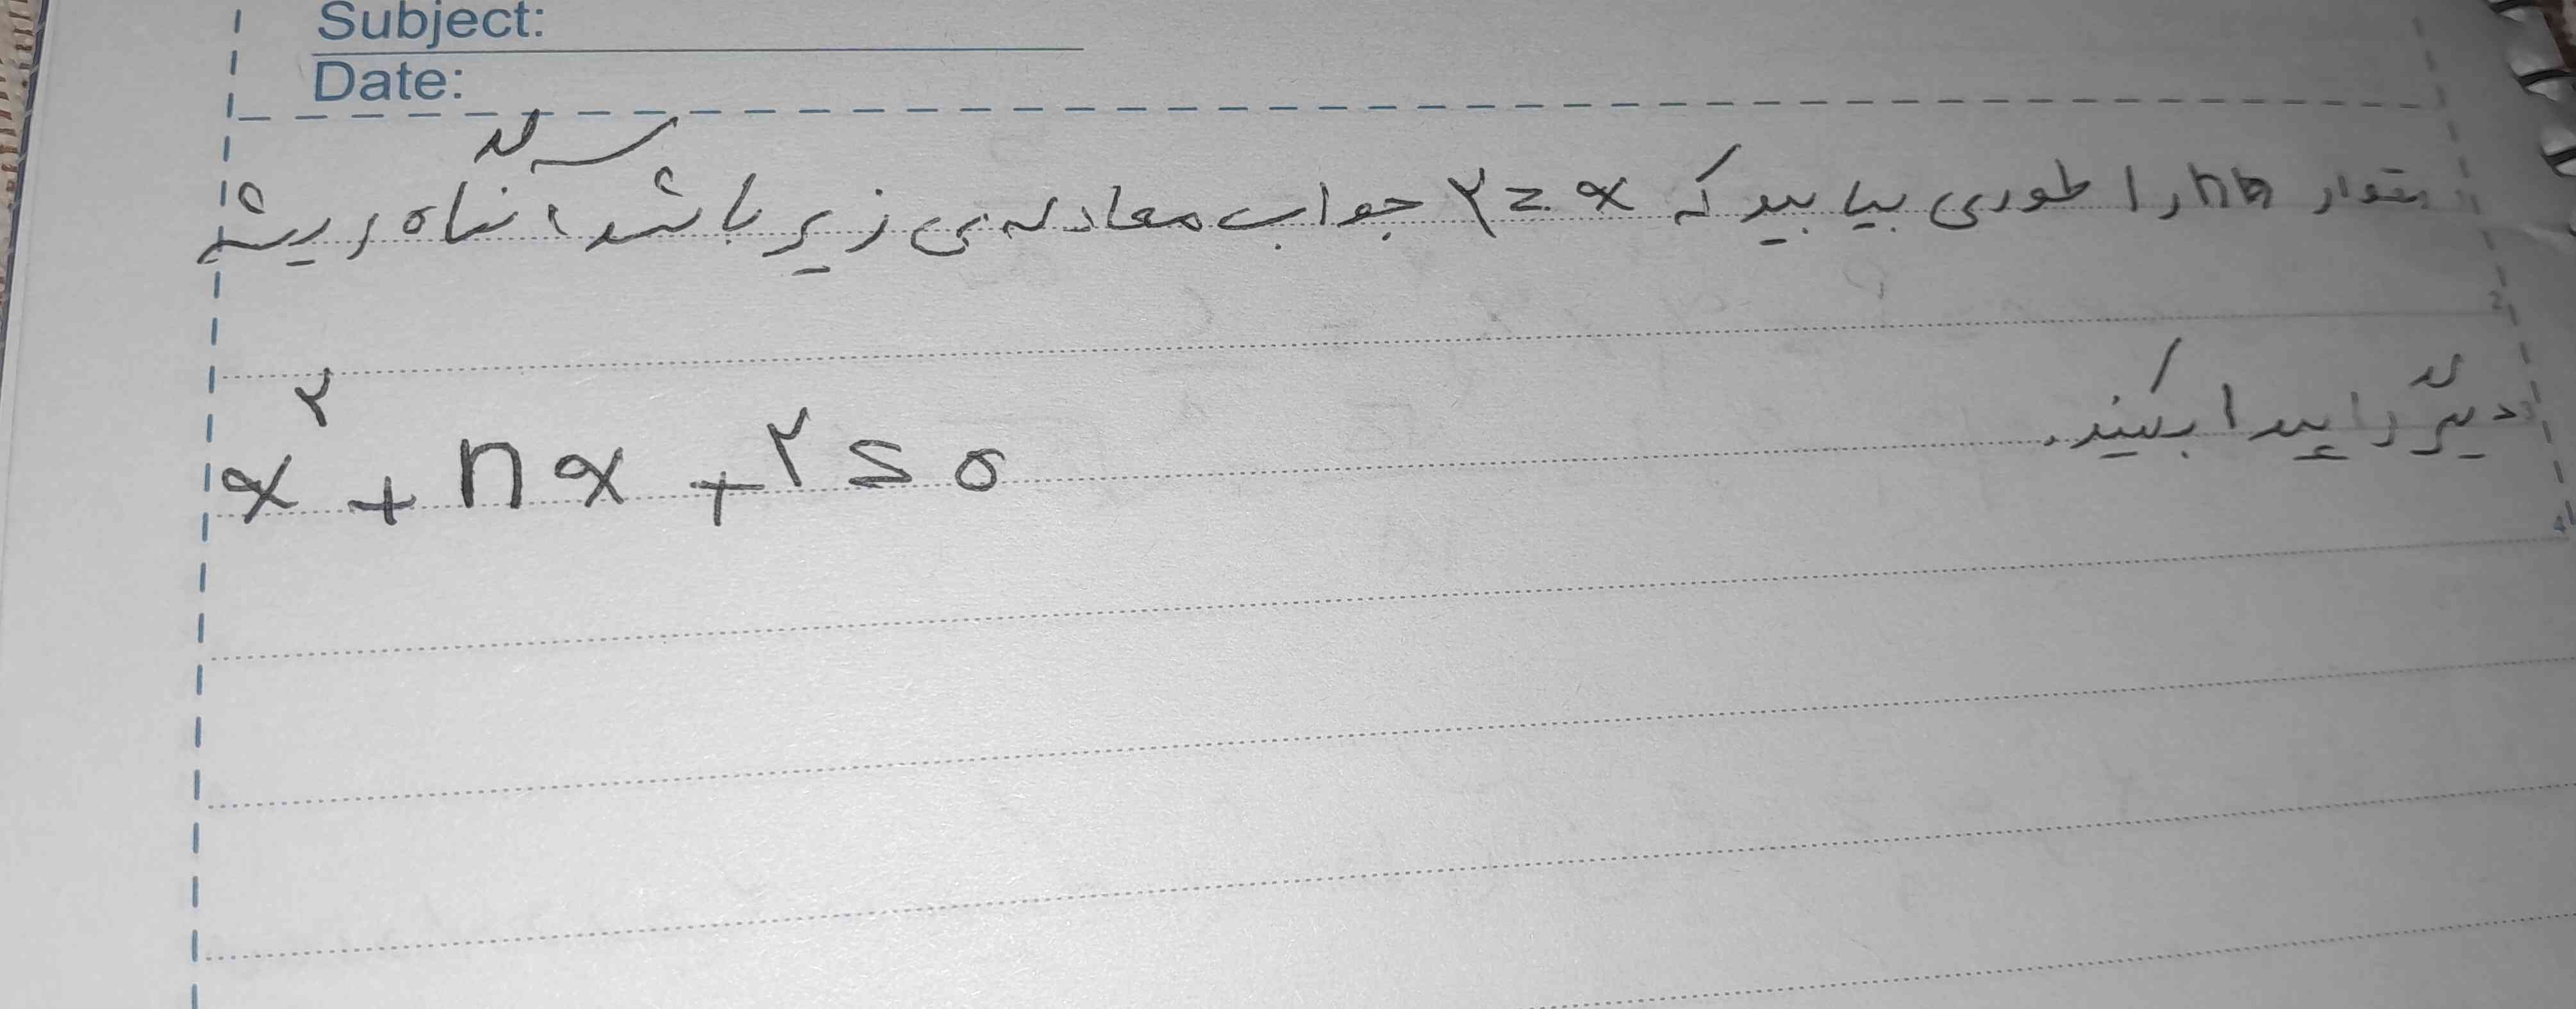 Subject:
Date:
مقدار n را طوری بیابید که x = ۲ جواب معادله ی زیر باشد، سپس آنگاه ریشه
دیگر را پیدا بکنید.
x² + nx + ۲ = ۰